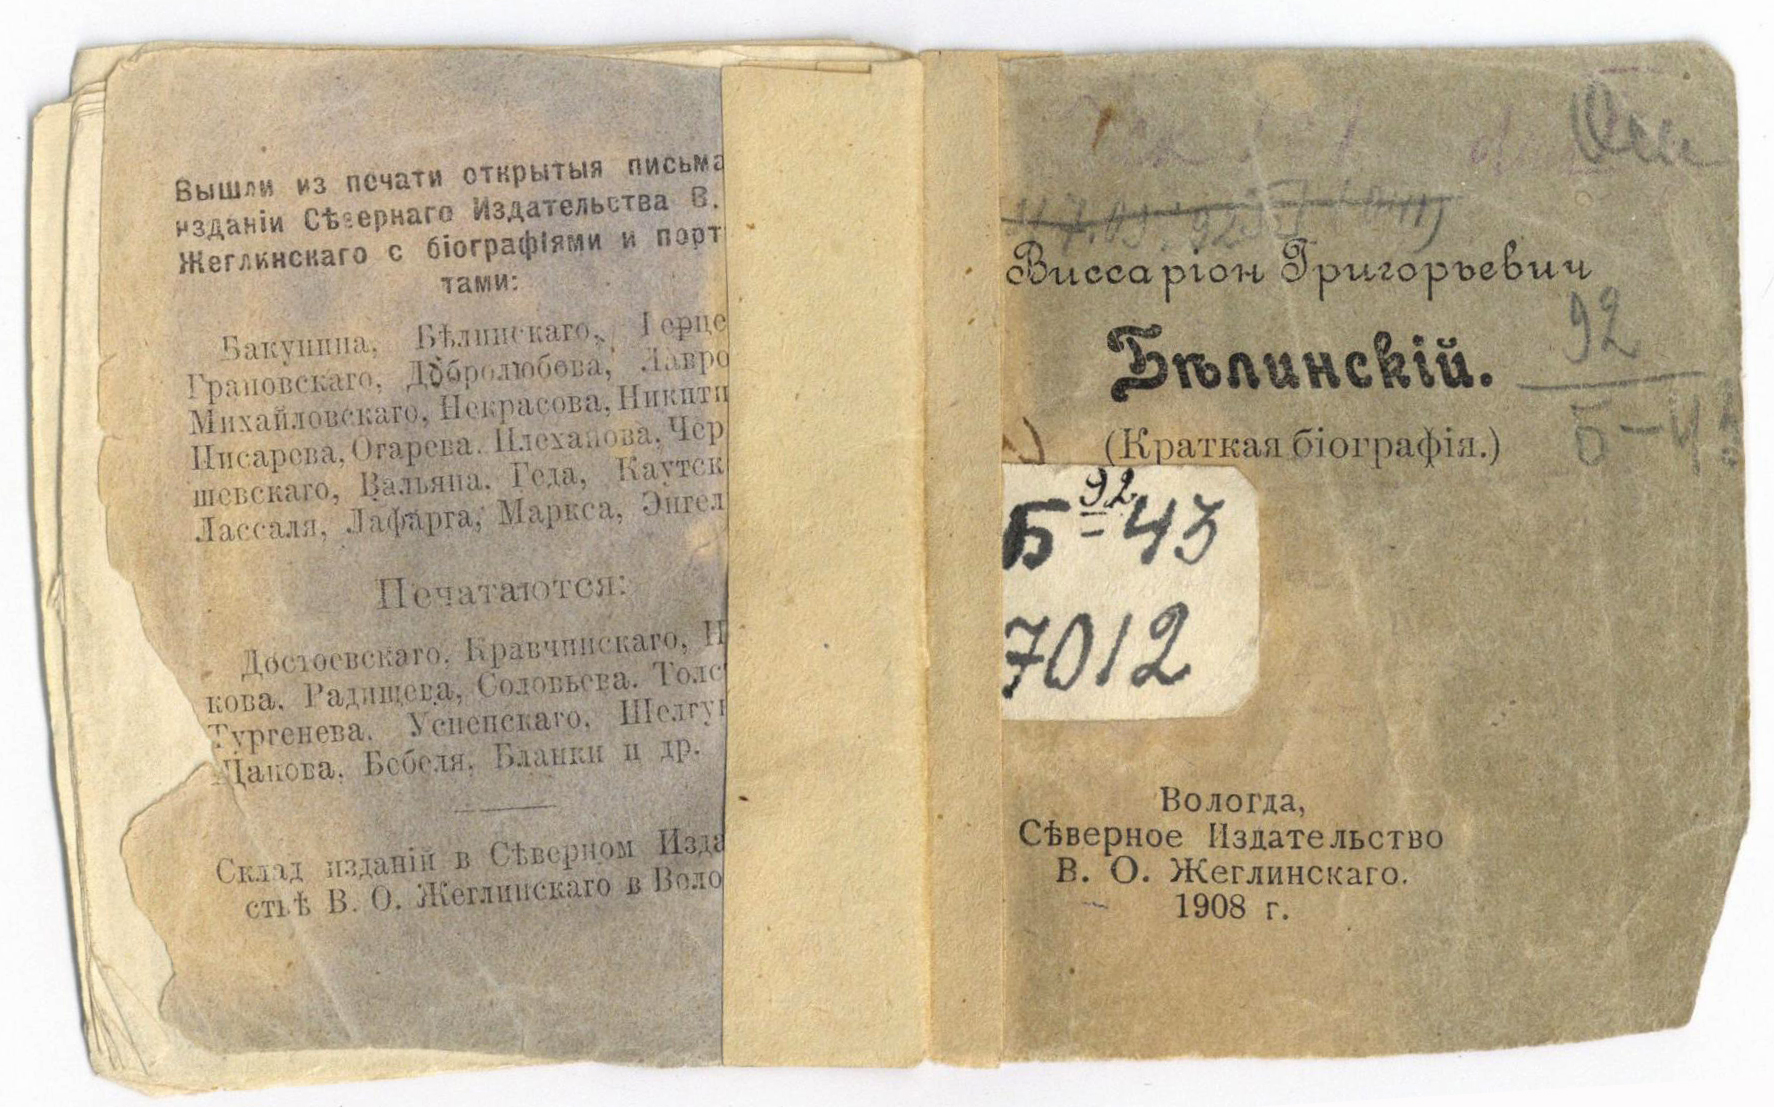 Вышли из печати открытыя письма
изданіи Сѣвернаго Издательства В.
Жеглинскаго с біографіями и порт
тами:
Бакунина, Бѣлинскаго, Герце
Грановскаго, Добролюбова, Лавро
Михайловскаго, Некрасова, Никити
Писарева, Огарева, Плеханова, Чер
шевскаго, Вальяна, Геда, Каутск
Лассаля, Лафарга, Маркса, Энгел
Печатаются:
Достоевскаго, Кравчинскаго, Н
кова, Радищева, Соловьева, Толс
Тургенева, Успенскаго, Шелгун
Цакова, Бебеля, Бланки и др.
Склад изданій в Сѣверном Изда
стьѣ В. О. Жеглинскаго в Воло
Виссаріон Григорьевич
Бѣлинскій.
(Краткая біографія.)
92
Б-43
92
Б-43
7012
Вологда,
Сѣверное Издательство
В. О. Жеглинскаго.
1908 г.